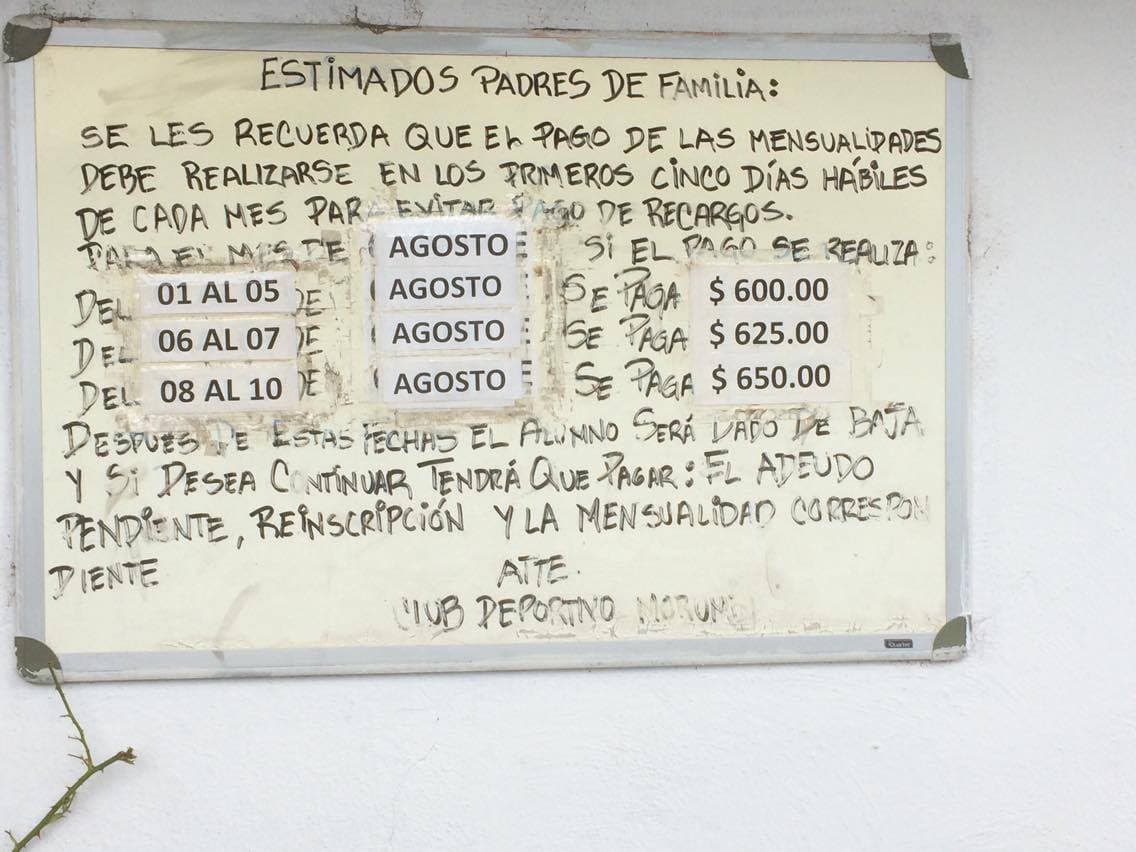 ESTIMADOS PADRES DE FAMILIA:
SE LES RECUERDA QUE EL PAGO DE LAS MENSUALIDADES
DEBE REALIZARSE EN LOS PRIMEROS CINCO DÍAS HÁBILES
DE CADA MES PARA EVITAR PAGO DE RECARGOS.
PARA EL MES DE AGOSTO SI EL PAGO SE REALIZA:
DEL 01 AL 05 DE AGOSTO SE PAGA $ 600.00
DEL 06 AL 07 DE AGOSTO SE PAGA $ 625.00
DEL 08 AL 10 DE AGOSTO SE PAGA $ 650.00
DESPUES DE ESTAS FECHAS EL ALUMNO SERÁ DADO DE BAJA
Y SI DESEA CONTINUAR TENDRÁ QUE PAGAR: EL ADEUDO
PENDIENTE, REINSCRIPCIÓN Y LA MENSUALIDAD CORRESPON
DIENTE ATTE.
CLUB DEPORTIVO
Quartet